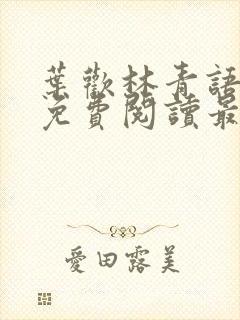 葉歡林青語
免費閱讀最
愛田露美